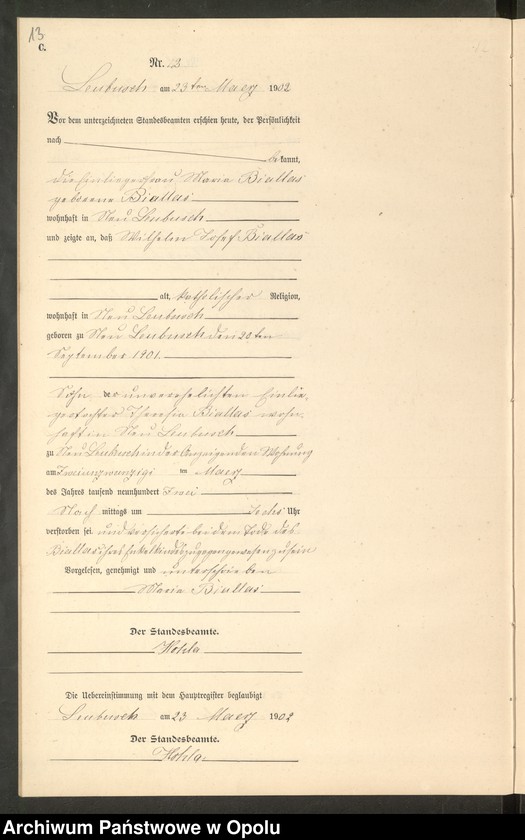 13
C.
Nr. 13
Leubusch am 23ten Maerz 1902
Vor dem unterzeichneten Standesbeamten erschien heute, der Persönlichkeit
nach
bekannt,
die Einliegerfrau Maria Biallas
geborene Biallas
wohnhaft in Neu Leubusch
und zeigte an, daß Wilhelm Josef Biallas
alt, katholischer Religion,
wohnhaft in Neu Leubusch
geboren zu Neu Leubusch den 20ten
September 1901.
Sohn der unverehelichten Einlie-
gertochter Theresia Biallas wohn-
haft in Neu Leubusch
zu Neu Leubusch in der Anzeigenden Wohnung
am Zweiundzwanzigsten Maerz
des Jahres tausend neunhundert Zwei
Nach mittags um Sechs Uhr
verstorben sei und versicherte bei dem Tode des
Biallas ihres Enkelkindes zugegen gewesen zu sein
Vorgelesen, genehmigt und unterschrieben
Maria Biallas
Der Standesbeamte.
Die Uebereinstimmung mit dem Hauptregister beglaubigt
Leubusch am 23 Maerz 1902
Der Standesbeamte.
Archiwum Państwowe w Opolu